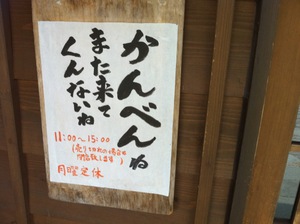 かんべんね
また来て
くんないね
11:00〜15:00
(売り切れの場合は
閉店致します)
月曜定休